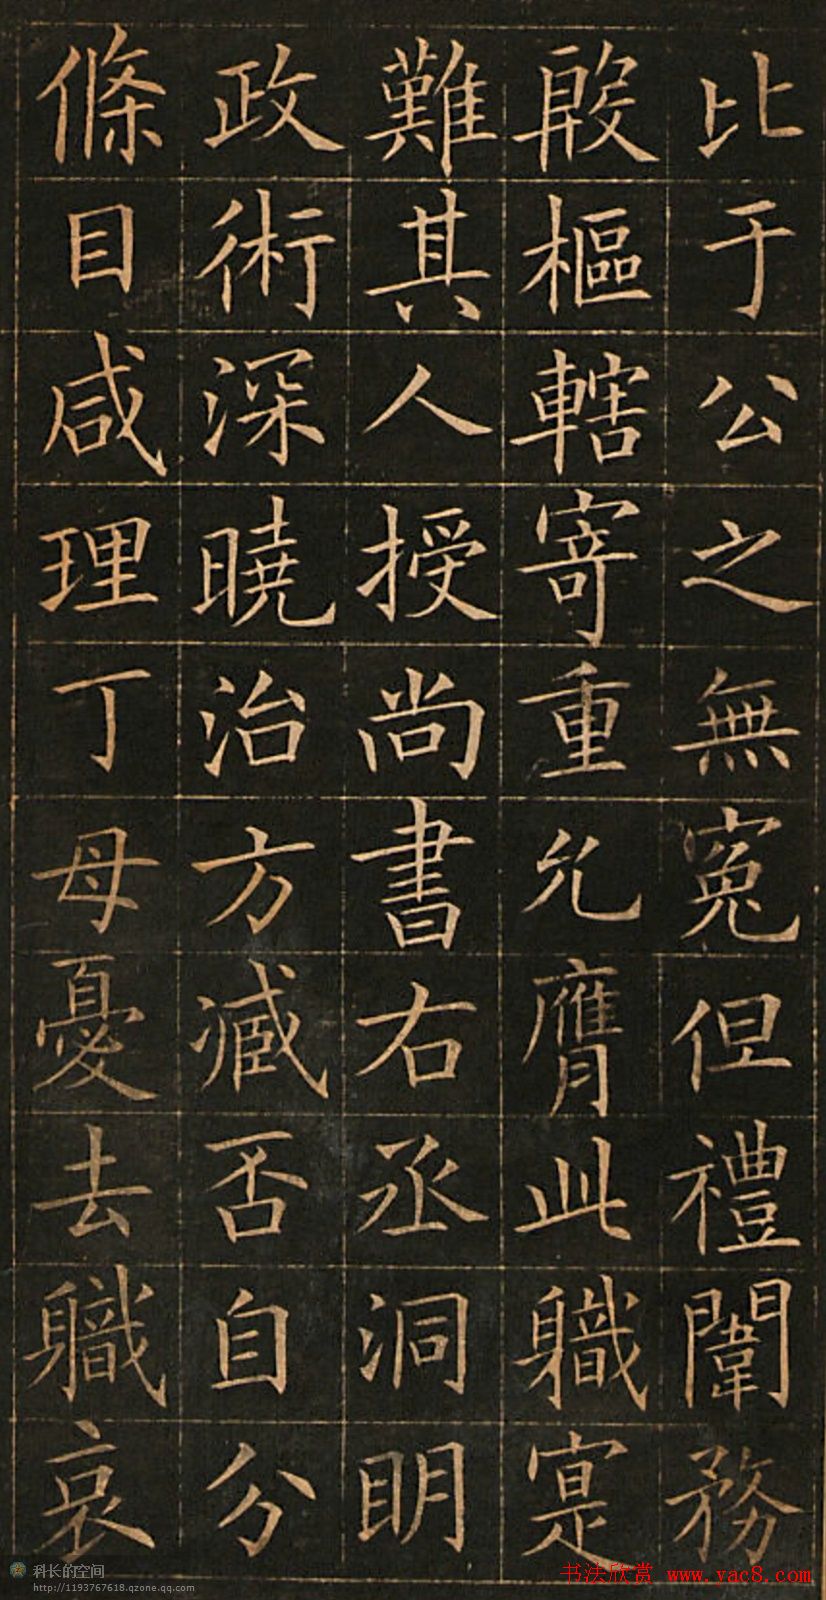 比于公之無寃但禮闈務
殷樞轄寄重允膺此軄寔
難其人授尚書右丞洞眀
政術深曉治方臧否自分
條目咸理丁母憂去軄哀
科长的空间
http://1193767618.qzone.qq.com
书法欣赏 www.yac8.com